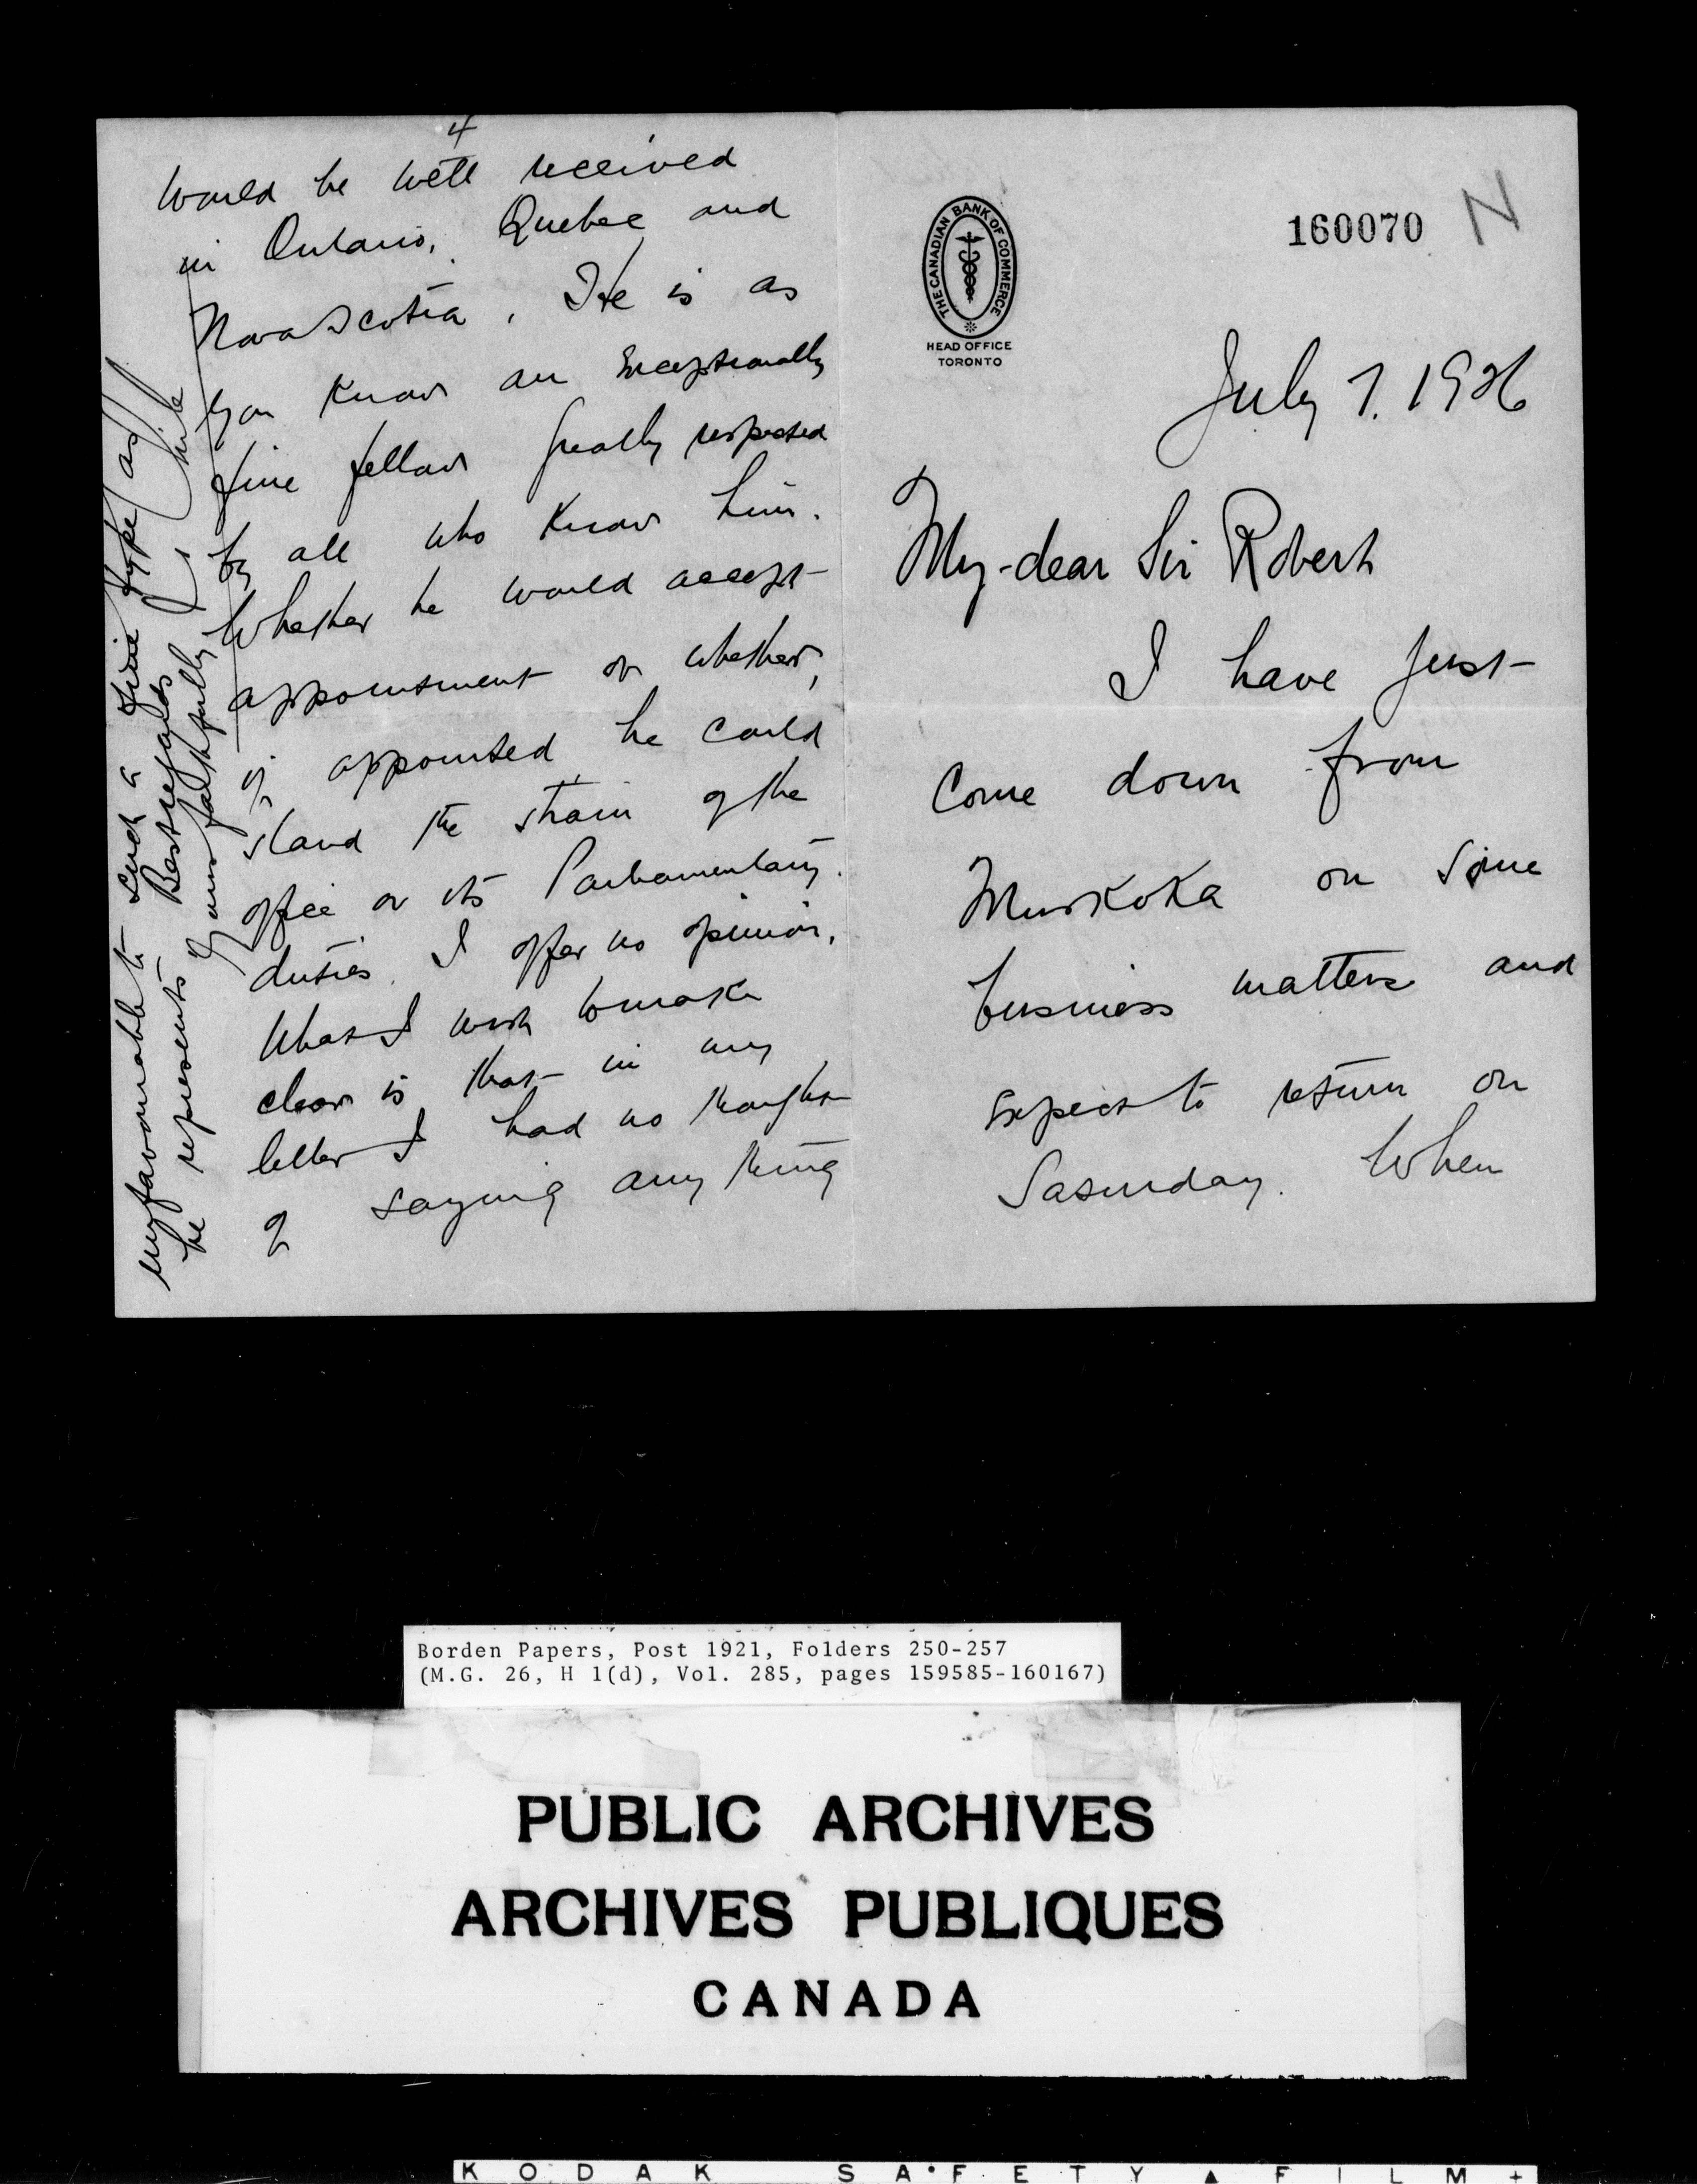 4
would be well received
in Ontario, Quebec and
Nova Scotia. He is as
you know an exceptionally
fine fellow greatly respected
by all who know him.
Whether he would accept
appointment or whether,
if appointed he could
stand the strain of the
office or its Parliamentary
duties. I offer no opinion.
What I wish to make
clear is that in my
letter I had no thought
of saying any thing
unfavourable to such a fine type as
he represents
Best regards
Yours faithfully
THE CANADIAN BANK OF COMMERCE
HEAD OFFICE
TORONTO
160070 N
July 7. 1926
My dear Sir Robert
I have just
come down from
Muskoka on some
business matters and
expect to return on
Saturday. When
Borden Papers, Post 1921, Folders 250-257
(M.G. 26, H 1(d), Vol. 285, pages 159585-160167)
PUBLIC ARCHIVES
ARCHIVES PUBLIQUES
CANADA
KODAK SAFETY FILM